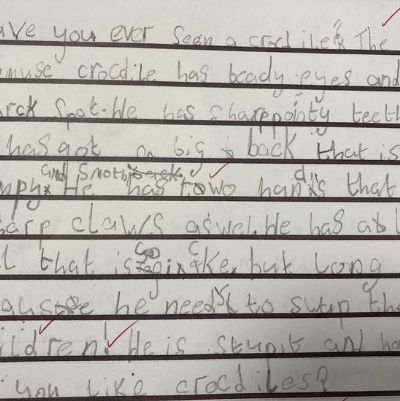 ave you ever sean a crocdile? The
muse crocdile has beady eyes and
arck spot. He has sharp pointy teeth
has got a big back that is
mpy. and smoth He has towo hands that
harp claws aswel. He has abl
l that is thke, but long
ause he needs to swip the
ildren! He is stupit and ha
you like crocdiles?